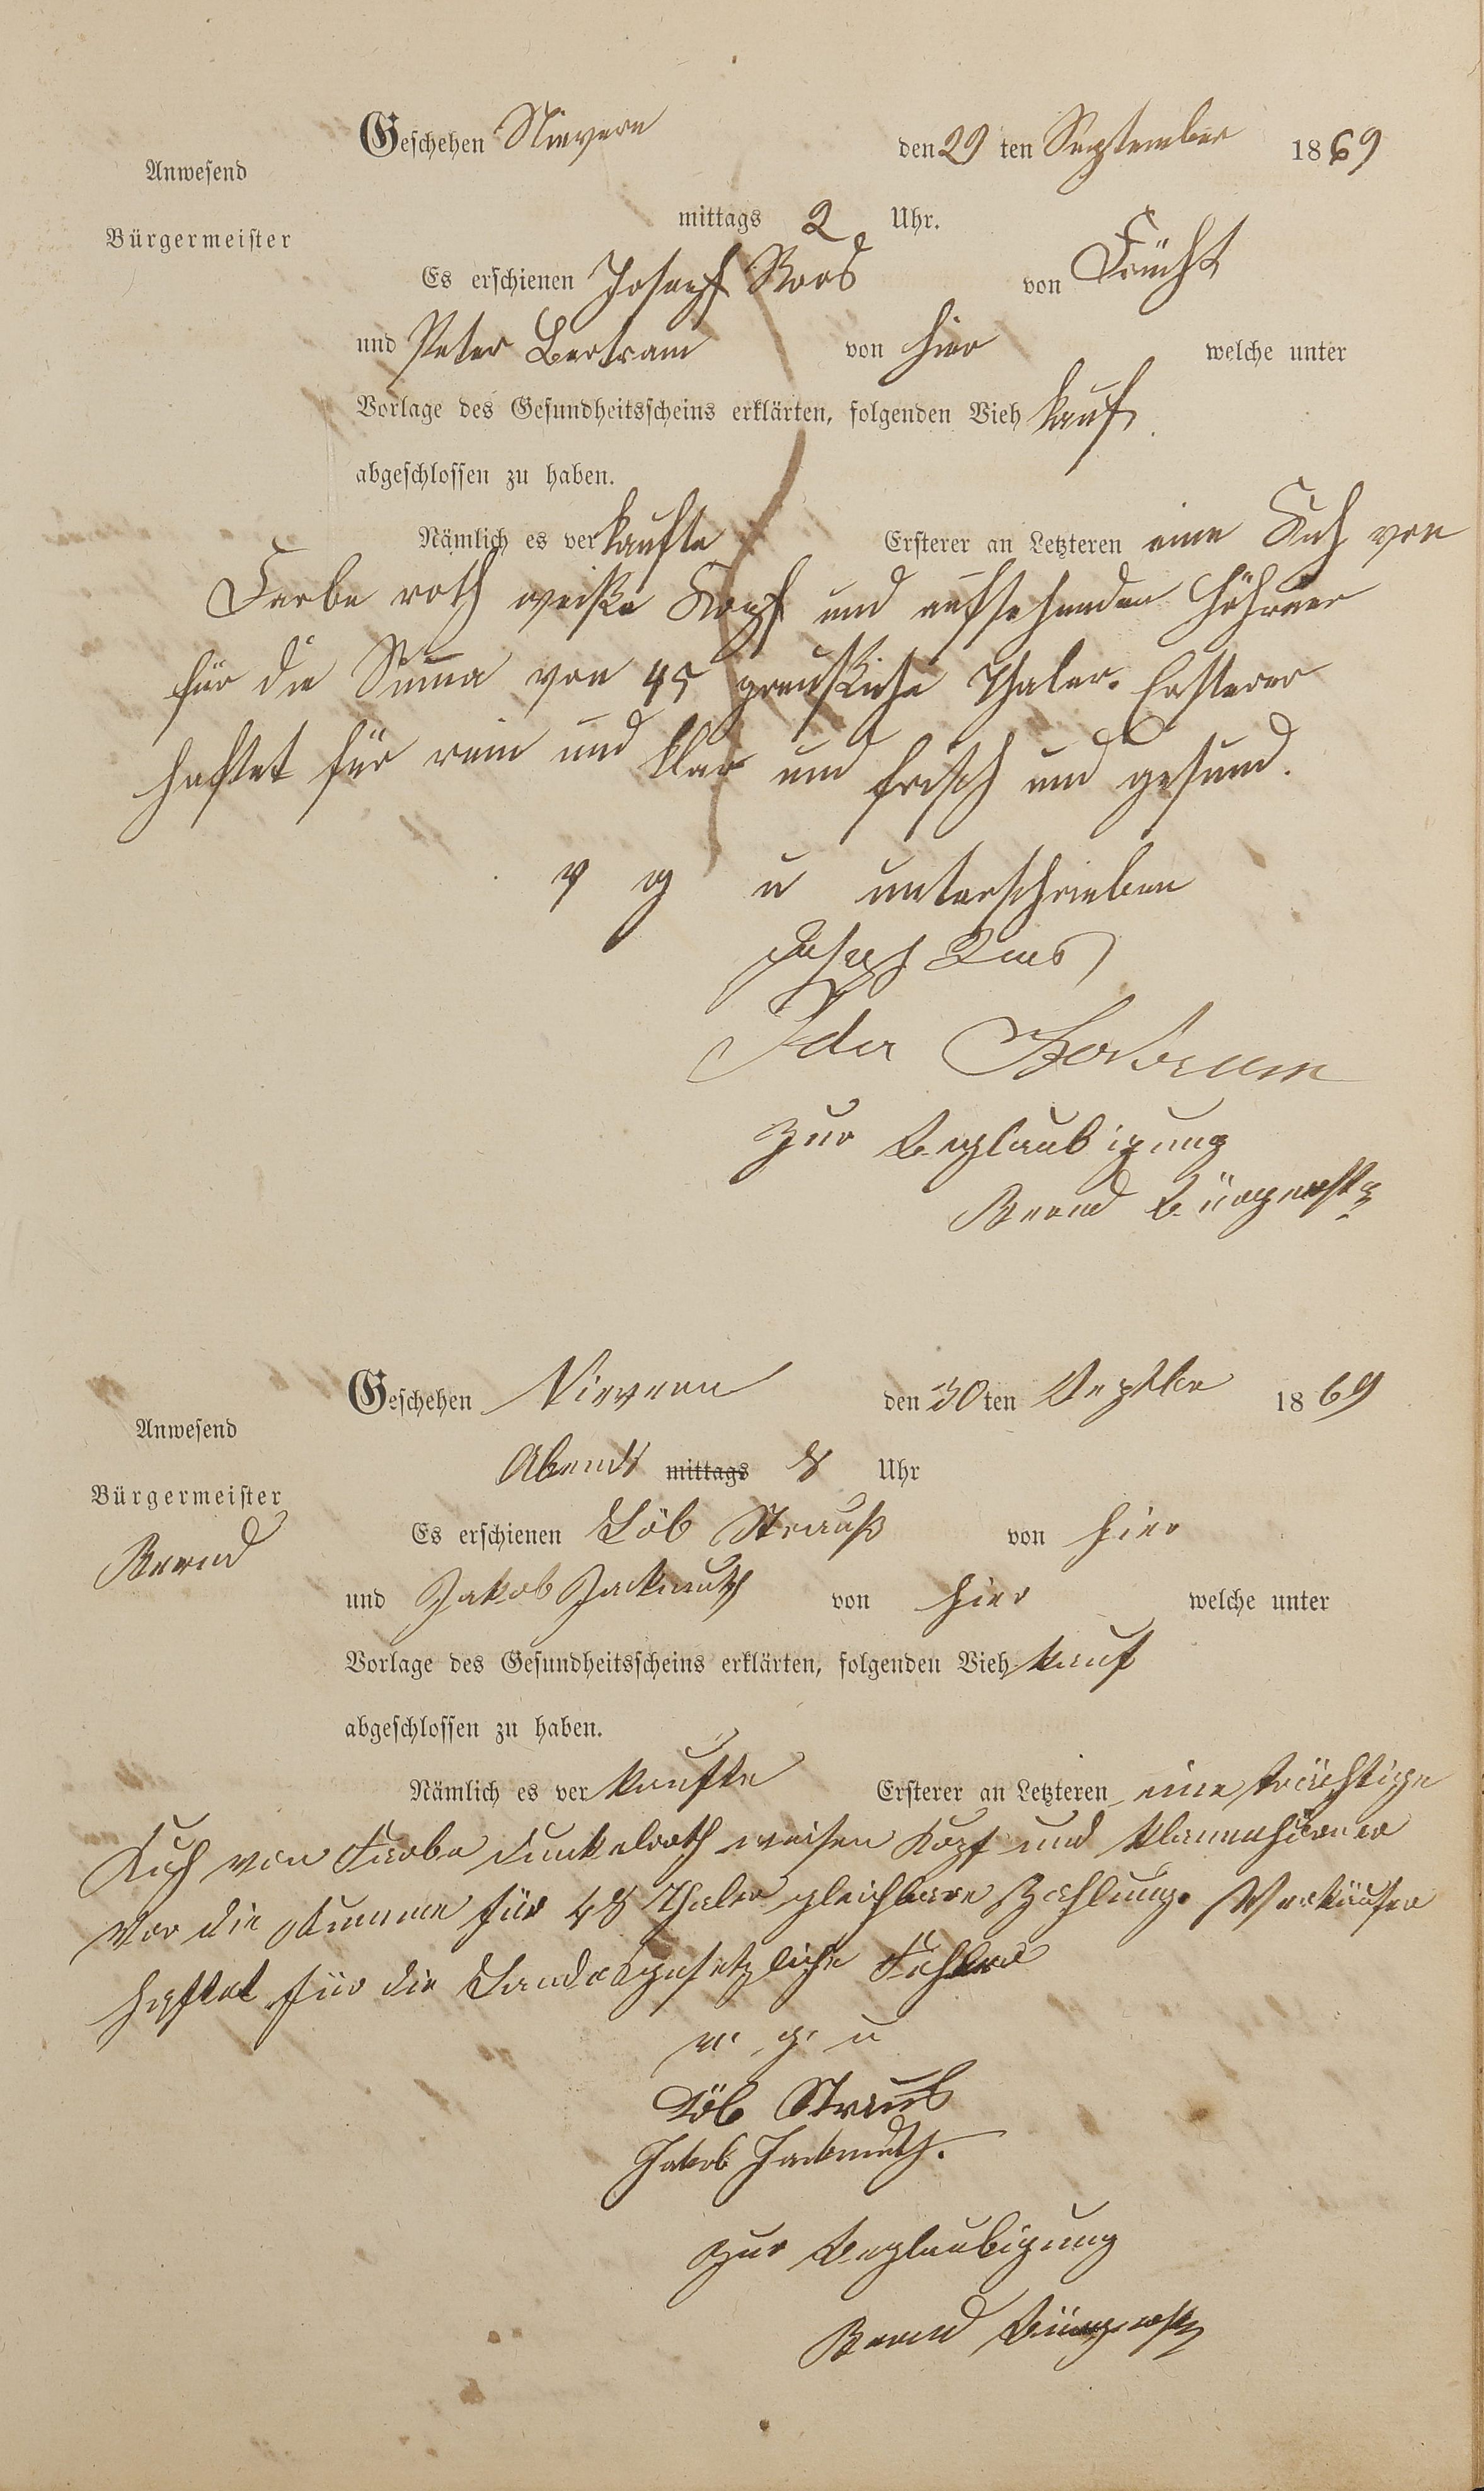 Geschehen Nievern den 29 ten September 1869
Anwesend
mittags 2 Uhr.
Bürgermeister
Es erschienen Joseph Roos von Frücht
und Peter Bertram von hier welche unter
Vorlage des Gesundheitsscheins erklärten, folgenden Vieh kauf
abgeschlossen zu haben.
Nämlich es verkaufte Ersterer an Letzteren eine Kuh von
Farbe roth weiße Kopf und aufsehenden Höhrner
für die Suma von 45 preußische Thaler. Ersterer
haftet für rein und klar und frisch und gesund.
v g u unterschrieben
Joseph Roos
Peter Bertram
zur Beglaubigung
Bürgermstr
Geschehen Nievern den 30ten Septbr 1869
Anwesend
Abends mittags 8 Uhr
Bürgermeister
Es erschienen Löb Strauß von hier
und Jakob Zackmuth von hier welche unter
Vorlage des Gesundheitsscheins erklärten, folgenden Vieh kauf
abgeschlossen zu haben.
Nämlich es verkaufte Ersterer an Letzteren eine trächtige
Kuh von Farbe dunkelroth weisen Kopf und Hörner
vor die Summe für 48 Thaler gleichbare Zahlung. Verkäufer
haftet für die Landesgesetzliche Fehler
v. g. u
Löb Straus
Jakob
zur Beglaubigung
Bürgermstr